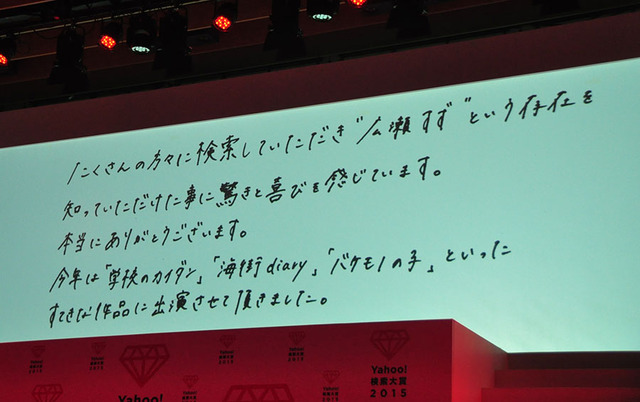 たくさんの方々に検索していただき"広瀬すず"という存在を
知っていただけた事に驚きと喜びを感じています。
本当にありがとうございます。
今年は「学校のカイダン」「海街diary」「バケモノの子」といった
すてきな作品に出演させて頂きました。
Yahoo!
検索大賞
2015
Yahoo!
検索大賞
2015
Yahoo!